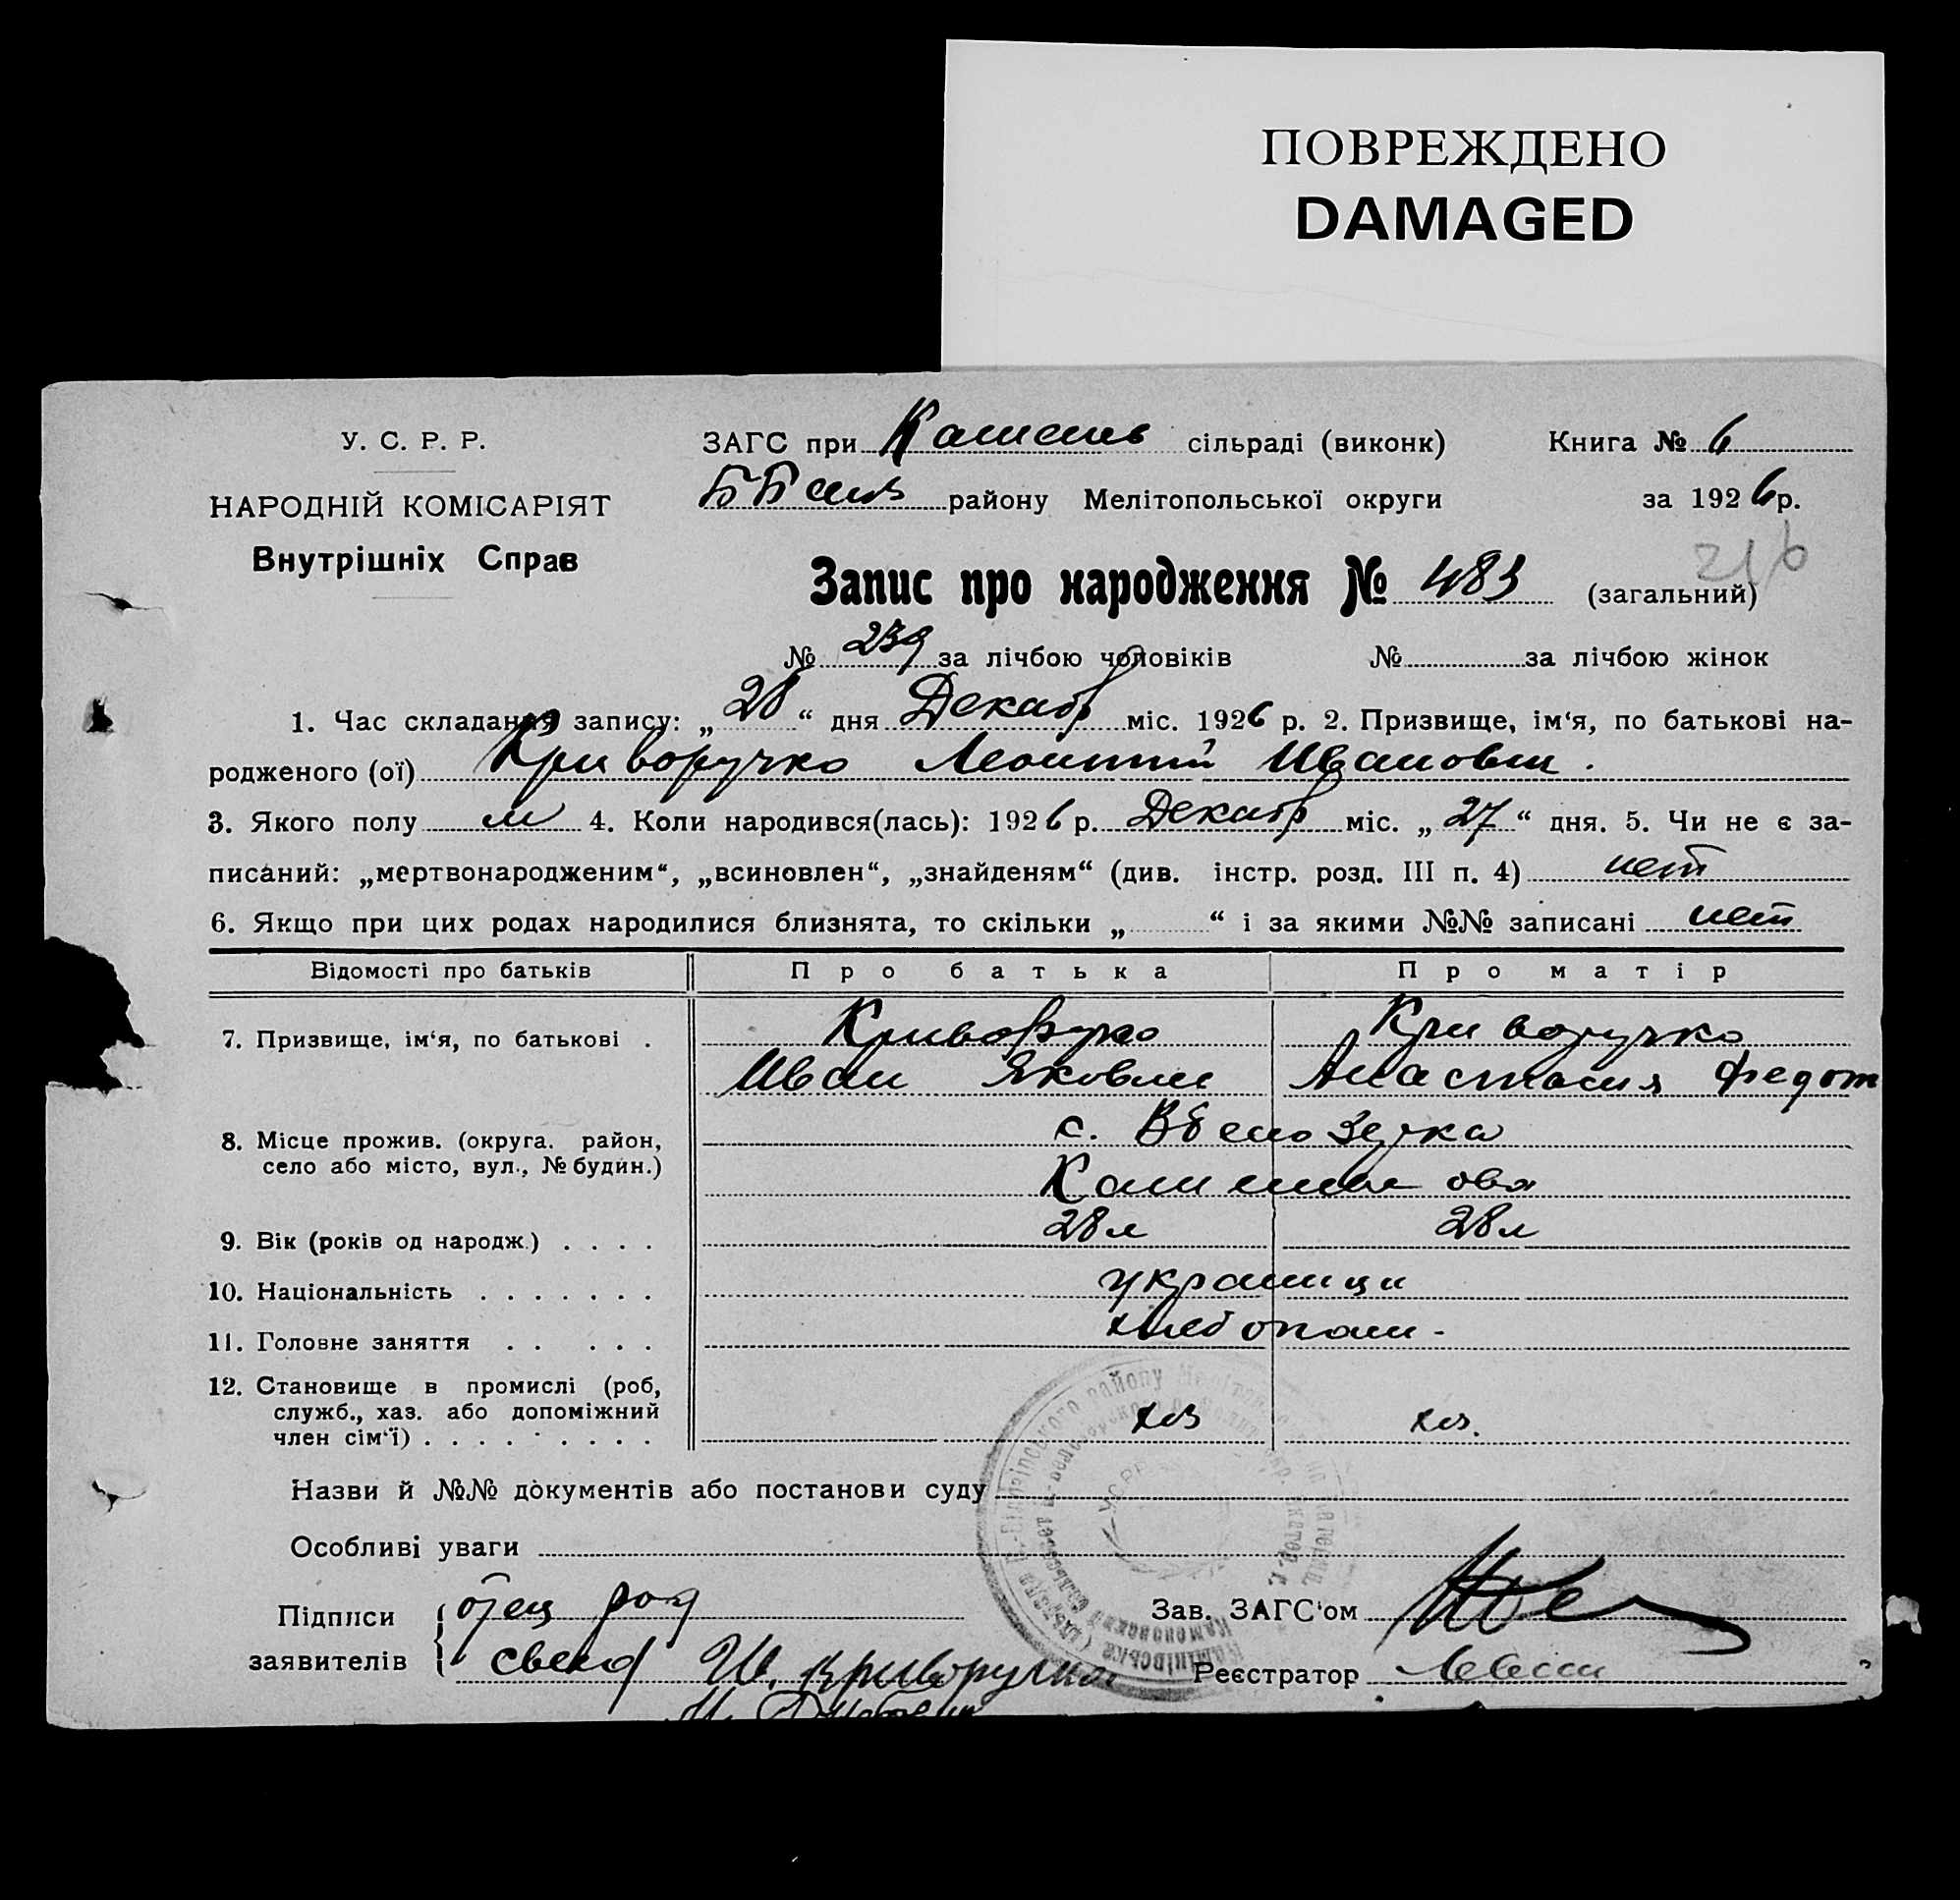 ПОВРЕЖДЕНО
DAMAGED
У. С. Р. Р.
НАРОДНІЙ КОМІСАРІЯТ
Внутрішніх Справ
ЗАГС при сільраді (виконк) Книга № 6
району Мелітопольської округи за 1926 р.
216
Запис про народження № 483 (загальний)
№ 239 за лічбою чоловіків № за лічбою жінок
1. Час складання запису: „28“ дня Декабр міс. 1926 р. 2. Призвище, ім‘я, по батькові на-
родженого (ої) Криворучко Леонтий Иванович.
3. Якого полу м 4. Коли народився(лась): 1926 р. Декабр міс. „27“ дня. 5. Чи не є за-
писаний: „мертвонародженим“, „всиновлен“, „знайденям“ (див. інстр. розд. III п. 4) нет
6. Якщо при цих родах народилися близнята, то скільки „ “ і за якими №№ записані нет
Відомості про батьків Про батька Про матір
7. Призвище, ім‘я, по батькові . Криворучко Криворучко
Иван Яковлев Анастасия Федот
8. Місце прожив. (округа. район, с.
село або місто, вул., № будин.)
9. Вік (років од народж.) . . . . 28 л 28 л
10. Національність . . . . . . . украинци
11. Головне заняття . . . . . хлебопаш-
12. Становище в промислі (роб,
служб., хаз. або допоміжний хоз хоз.
член сім‘ї) . . . . . . . . .
Назви й №№ документів або постанови суду
Особливі уваги
Підписи отец
заявителів свед И. Криворучко
Зав. ЗАГС‘ом
Реєстратор